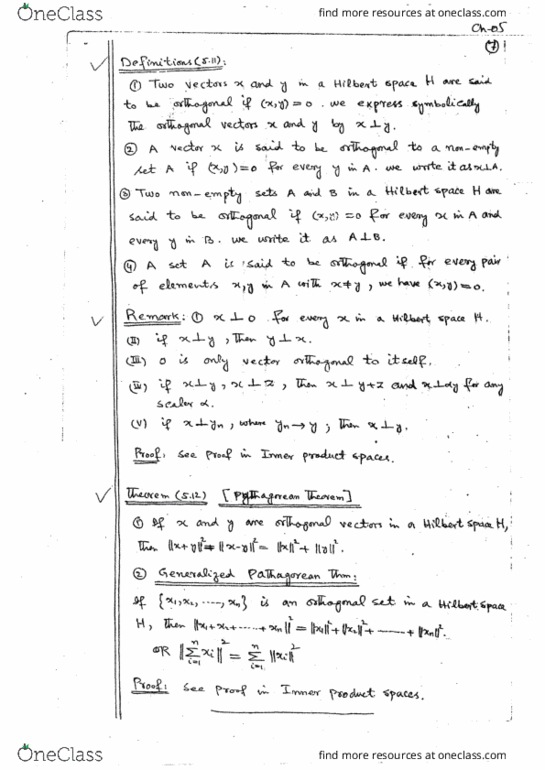 OneClass
find more resources at oneclass.com
Ch-05
(7)
Definitions (5.11):
① Two vectors x and y in a Hilbert space H are said
to be orthogonal if (x,y)=0. we express symbolically
the orthogonal vectors x and y by x⊥y.
② A vector x is said to be orthogonal to a non-empty
set A if (x,y)=0 for every y in A. we write it as x⊥A.
③ Two non-empty sets A and B in a Hilbert space H are
said to be orthogonal if (x,y)=0 for every x in A and
every y in B. we write it as A⊥B.
④ A set A is said to be orthogonal if for every pair
of elements x,y in A with x≠y, we have (x,y)=0.
Remark: ① x⊥0 for every x in a Hilbert space H.
(II) if x⊥y, then y⊥x.
(III) 0 is only vector orthogonal to itself.
(IV) if x⊥y, x⊥z, then x⊥y+z and x⊥αy for any
scaler α.
(V) if x⊥yn, where yn→y, then x⊥y.
Proof: see proof in Inner product spaces.
Theorem (5.12) [Pythagorean Theorem]
① If x and y are orthogonal vectors in a Hilbert space H,
then ‖x+y‖²=‖x-y‖²=‖x‖²+‖y‖².
② Generalized Pathagorean Thm:
If {x₁,x₂,.....,xn} is an orthogonal set in a Hilbert space
H, then ‖x₁+x₂+......+xn‖²=‖x₁‖²+‖x₂‖²+......+‖xn‖².
OR ‖∑ᵢ₌₁ⁿ xi‖² = ∑ᵢ₌₁ⁿ ‖xi‖²
Proof: see proof in Inner product spaces.
OneClass
find more resources at oneclass.com